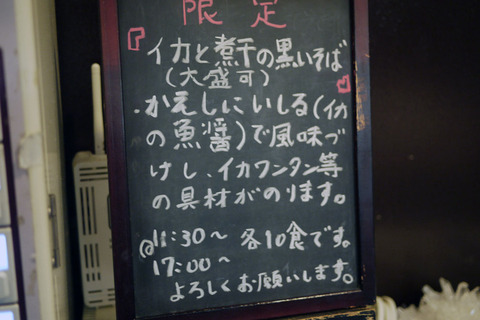 限定
『イカと煮干の黒いそば
(大盛可)
・かえしにいしる(イカ
の魚醤)で風味づ
けし、イカワンタン等
の具材がのります。
@11:30〜 各10食です。
17:00〜
よろしくお願いします。